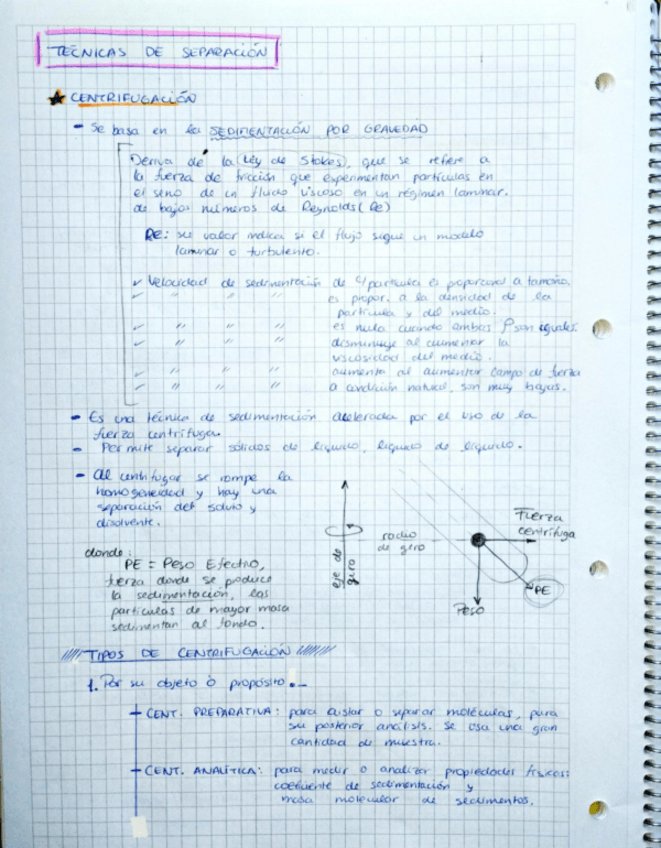 TÉCNICAS DE SEPARACIÓN
★ CENTRIFUGACIÓN
- Se basa en la SEDIMENTACIÓN POR GRAVEDAD
Deriva de la Ley de Stokes, que se refiere a
la fuerza de fricción que experimentan partículas en
el seno de un fluido viscoso en un régimen laminar.
de bajos números de Reynolds (Re)
Re: su valor indica si el flujo sigue un modelo
laminar o turbulento.
✓ Velocidad de sedimentación de c/ partícula es proporcional a tamaño.
✓ " " " es propor. a la densidad de la
partícula y del medio.
✓ " " " es nula cuando ambas ρ son iguales.
✓ " " " disminuye al aumentar la
viscosidad del medio.
✓ " " " aumenta al aumentar campo de fuerza
✓ " " " a condición natural, son muy bajas.
- Es una técnica de sedimentación acelerada por el uso de la
fuerza centrífuga.
- Permite separar sólidos de líquido, líquido de líquido.
- Al centrifugar se rompe la
homogeneidad y hay una
separación del soluto y
disolvente.
eje de
giro
radio
de giro
Fuerza
centrífuga
PE
Peso
donde:
PE = Peso Efectivo,
fuerza donde se produce
la sedimentación, las
partículas de mayor masa
sedimentan al fondo.
TIPOS DE CENTRIFUGACIÓN
1. Por su objeto ó propósito.-
CENT. PREPARATIVA: para aislar o separar moléculas, para
su posterior análisis. Se usa una gran
cantidad de muestra.
CENT. ANALÍTICA: para medir o analizar propiedades físicas:
coeficiente de sedimentación y
masa molecular de sedimentos.